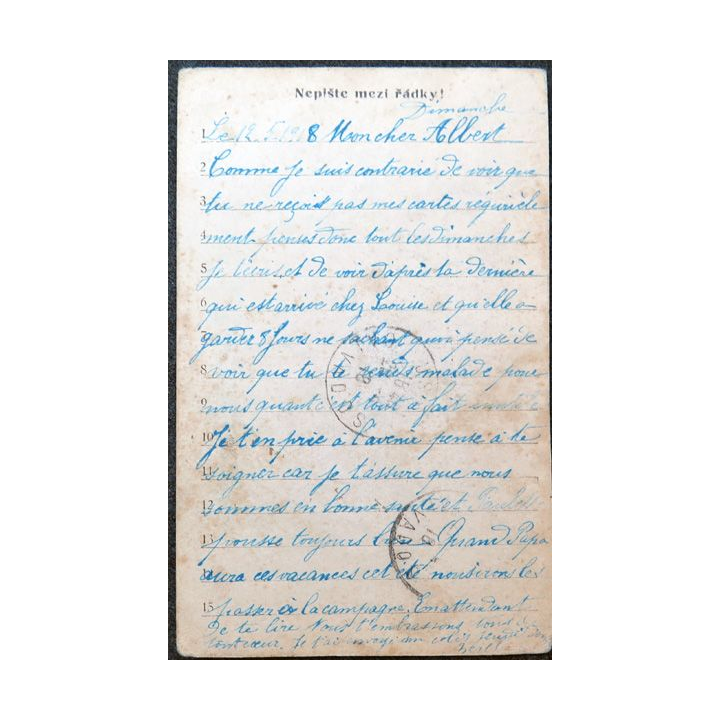 Nepište mezi řádky!
Dimanche
1 Le 12.5.1918 Mon cher Albert
2 Comme Je suis contrarie de voir que
3 tu ne reçois pas mes cartes
4 ment penses donc tout les dimanches
5 Je t'écris et de voir d'après ta dernière
6 qui est arrivé chez Louise et qu'elle a
garder 8 Jours ne sachant quoi pensé de
8 voir que tu te rends malade pour
9 nous quant c'est tout à fait
10 Je t'en prie à l'avenir pense à te
11 soigner car je t'assure que nous
12 sommes en bonne santé et
13 pousse toujours bien Quand Papa
14 aura ces vacances cet été nous irons les
15 passer à la campagne. En attendant
De te lire Nous t'embrassons tous de
tout cœur. Je t'ai envoyé un colis